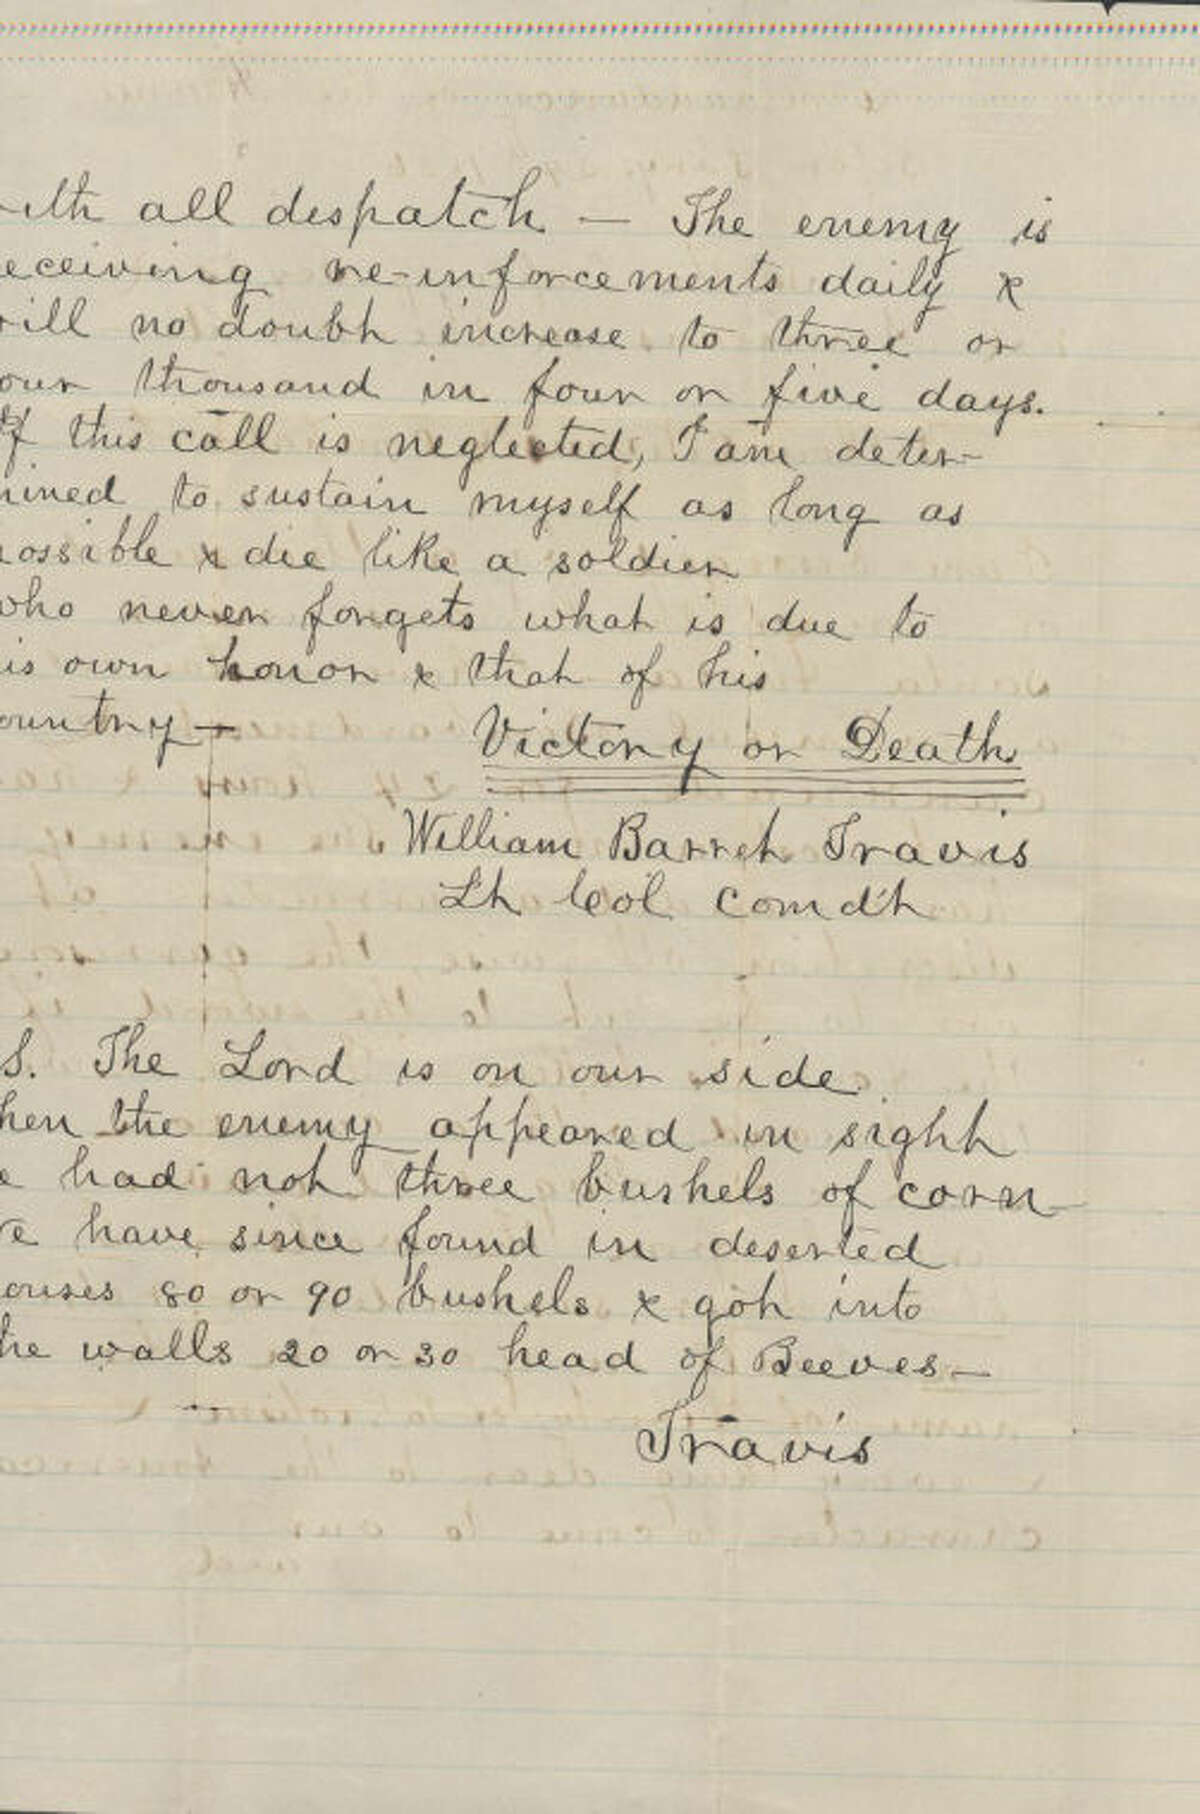 ith all despatch — The enemy is
eceiving re-inforcements daily &
ill no doubt increase to three or
our thousand in four or five days.
If this call is neglected, I am deter-
mined to sustain myself as long as
possible & die like a soldier
who never forgets what is due to
is own honor & that of his
ountry — Victory or Death
William Barret Travis
Lt Col comdt
S. The Lord is on our side
hen the enemy appeared in sight
e had not three bushels of corn —
We have since found in deserted
ouses 80 or 90 bushels & got into
he walls 20 or 30 head of Beeves —
Travis